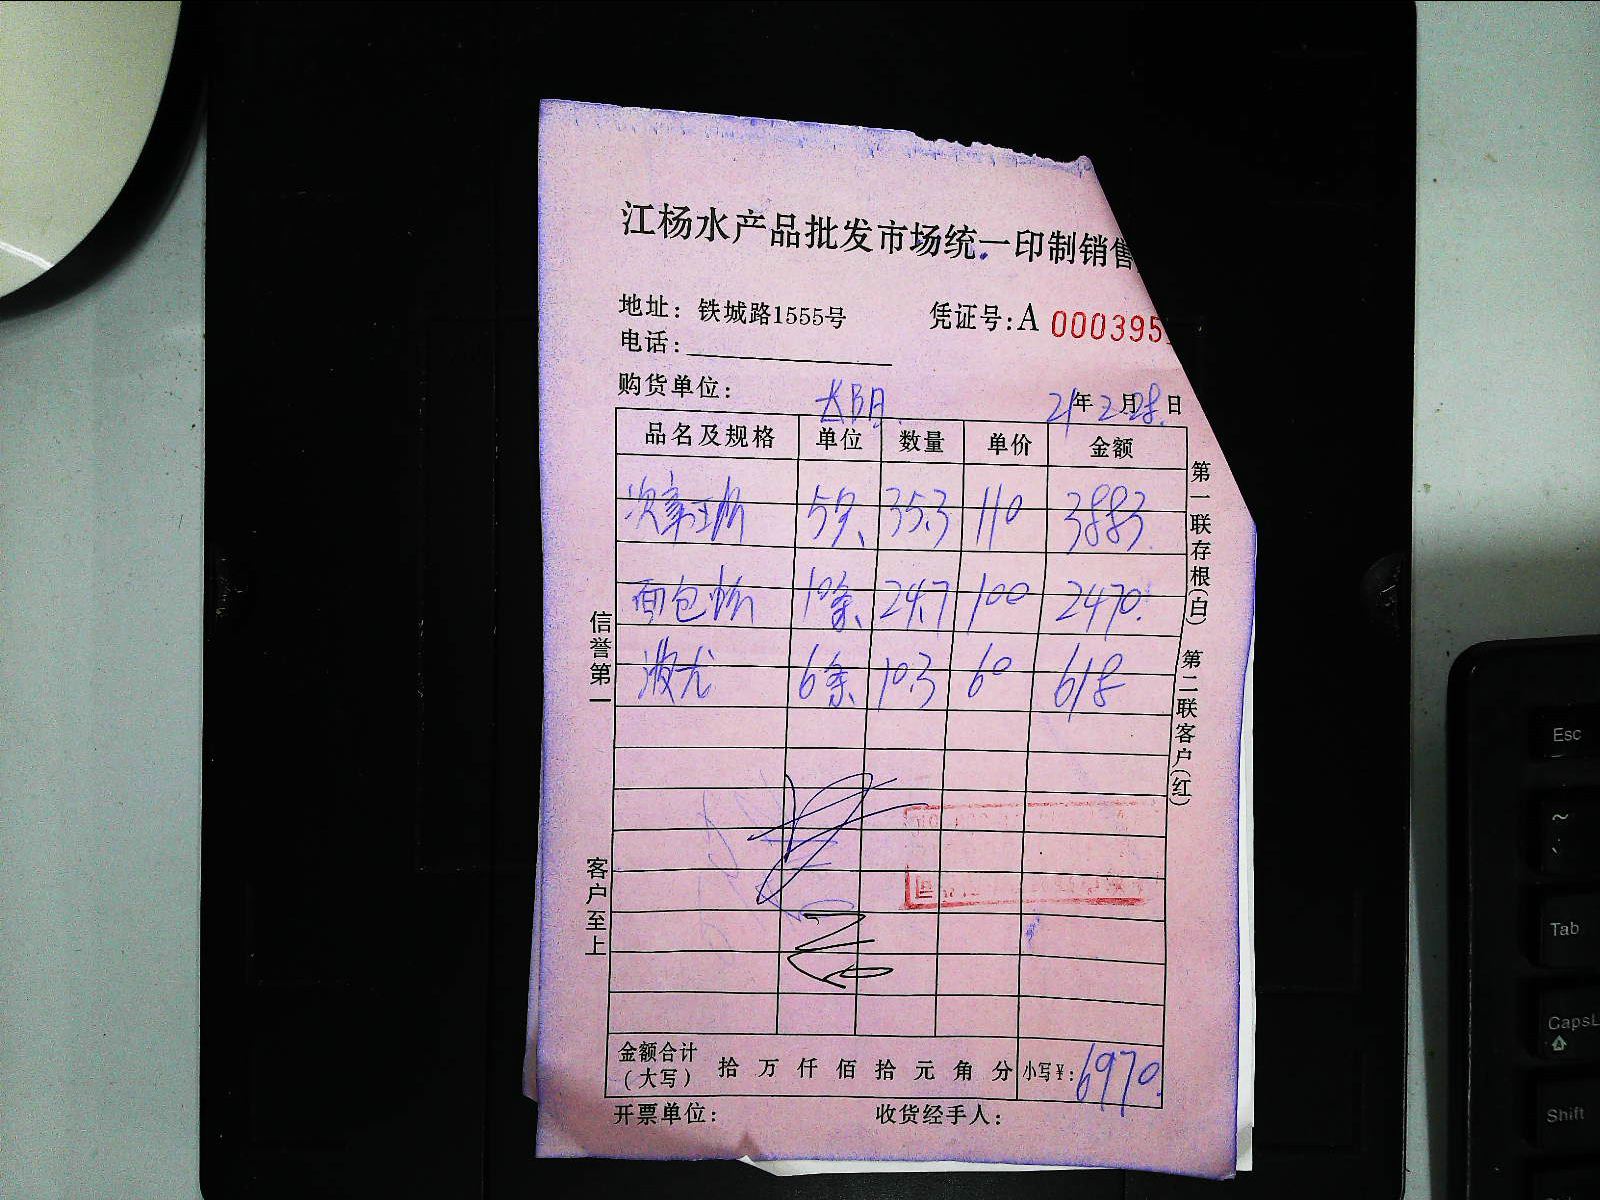 江杨水产品批发市场统一印制销售
地址：铁城路1555号
凭证号：A 000395
电话：
购货单位：
21年2月28日
品名及规格 单位 数量 单价 金额
5只 35.3 110 3883
面包 10条 24.7 100 2470.
波龙 6条 10.3 60 618
金额合计（大写） 拾 万 仟 佰 拾 元 角 分 小写¥：6970.
开票单位： 收货经手人：
信誉第一
客户至上
第一联存根（白）
第二联客户（红）
Esc
~
Tab
CapsL
Shift